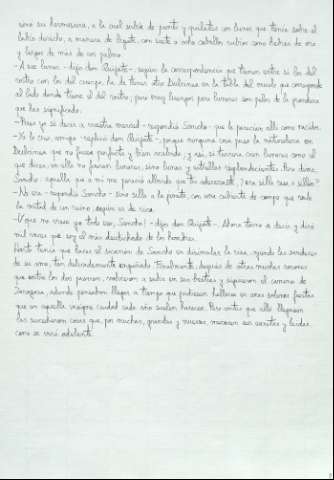 sino su hermosura, a la cual subía de punto y quilates un lunar que tenía sobre el
labio derecho, a manera de bigote, con siete o ocho cabellos rubios como hebras de oro
y largos de más de un palmo.
-A ese lunar -dijo don Quijote-, según la correspondencia que tienen entre sí los del
rostro con los del cuerpo, ha de tener otro Dulcinea en la tabla del muslo que corresponde
al lado donde tiene el del rostro, pero muy luengos para lunares son pelos de la grandeza
que has significado.
-Pues yo sé decir a vuestra merced -respondió Sancho- que le parecían allí como nacidos.
-Yo lo creo, amigo -replicó don Quijote-, porque ninguna cosa puso la naturaleza en
Dulcinea que no fuese perfecta y bien acabada, y así, si tuviera cien lunares como el
que dices, en ella no fueran lunares, sino lunas y estrellas resplandecientes. Pero dime,
Sancho: aquella que a mí me pareció albarda que tú aderezaste, ¿era silla rasa o sillón?
-No era -respondió Sancho- sino silla a la jineta, con una cubierta de campo que vale
la mitad de un reino, según es de rica.
-¡Y que no viese yo todo eso, Sancho! -dijo don Quijote-. Ahora torno a decir y diré
mil veces que soy el más desdichado de los hombres.
Harto tenía que hacer el socarrón de Sancho en disimular la risa, oyendo las sandeces
de su amo, tan delicadamente engañado. Finalmente, después de otras muchas razones
que entre los dos pasaron, volvieron a subir en sus bestias y siguieron el camino de
Zaragoza, adonde pensaban llegar a tiempo que pudiesen hallarse en unas solenes fiestas
que en aquella insigne ciudad cada año suelen hacerse. Pero antes que allá llegasen
les sucedieron cosas que, por muchas, grandes y nuevas, merecen ser escritas y leídas,
como se verá adelante.